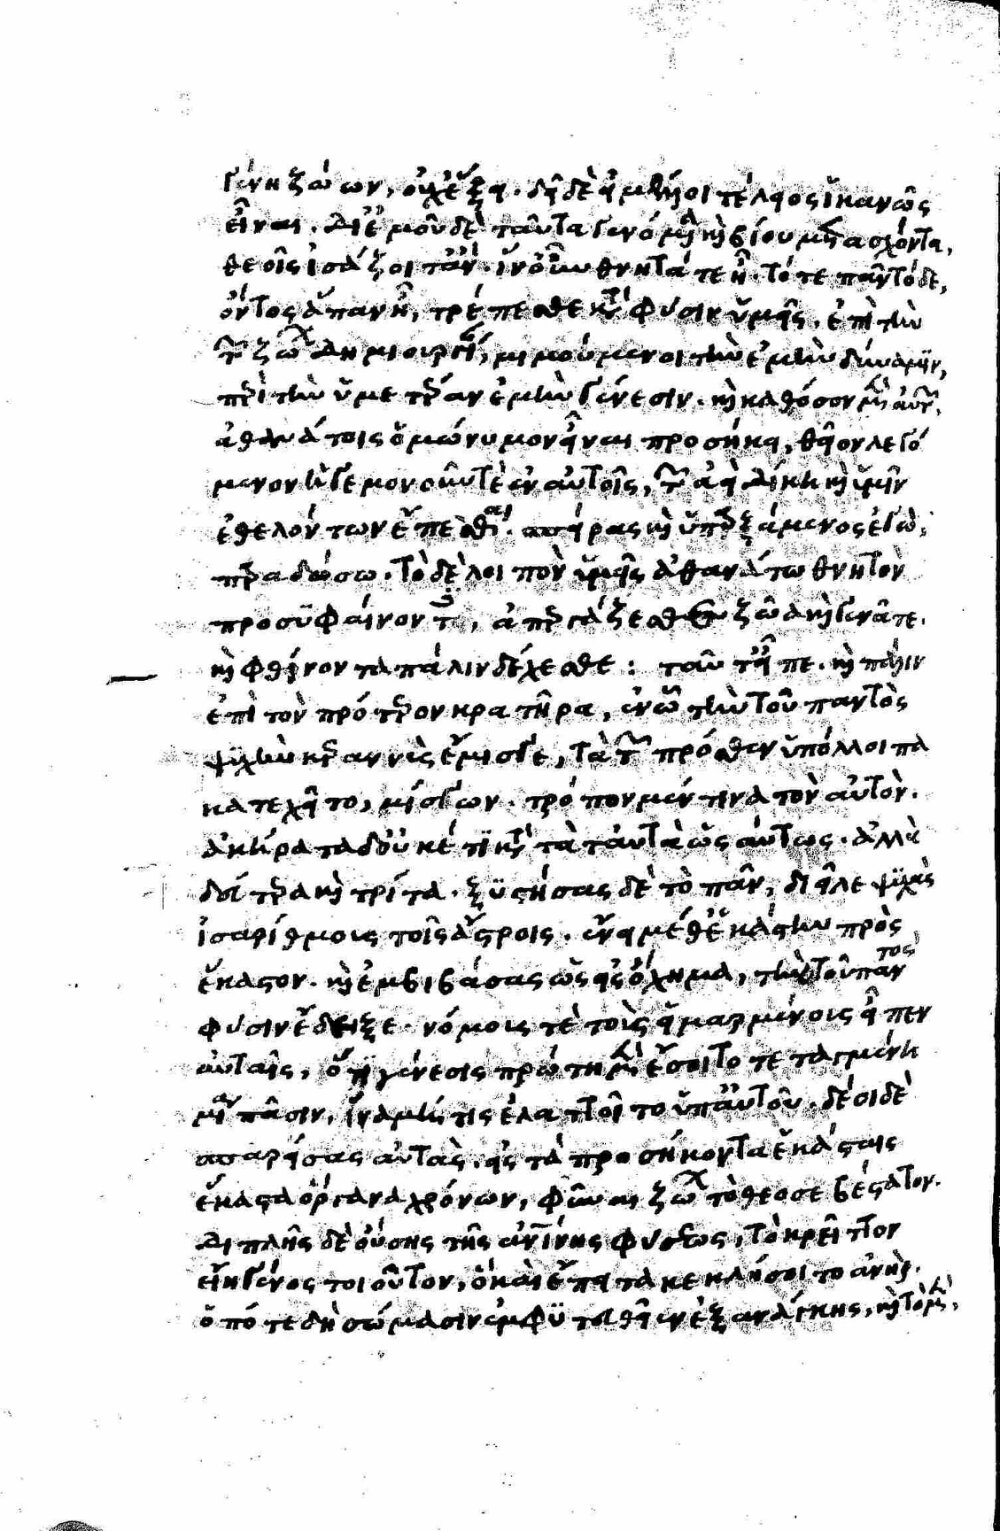 γένη ζώων, οὐχ ἕξει. δεῖ δὲ εἰ μέλλοι τέλεος ἱκανῶς
εἶναι. δι' ἐμοῦ δὲ ταῦτα γενόμενα καὶ βίου μετασχόντα,
θεοῖς ἰσάζοιτ' ἄν. ἵν' οὖν θνητά τε ᾖ. τό τε πᾶν τόδε,
ὄντως ἅπαν ᾖ, τρέπεσθε κατὰ φύσιν ὑμεῖς. ἐπὶ τὴν
τῶν ζώων δημιουργίαν, μιμούμενοι τὴν ἐμὴν δύναμιν,
περὶ τὴν ὑμετέραν ἐμὴν γένεσιν. καὶ καθόσον μὲν αὐτῶν.
ἀθανάτοις ὁμώνυμον εἶναι προσήκει, θεῖον λεγό
μενον ἡγεμονοῦν τὲ ἐν αὐτοῖς, τῶν ἀεὶ δίκη καὶ ὑμῖν
ἐθελόντων ἕπεσθαι. σπείρας καὶ ὑπαρξάμενος ἐγὼ,
παραδώσω. τὸ δὲ λοιπὸν ὑμεῖς ἀθανάτω θνητὸν
προσϋφαίνοντες, ἀπεργάζεσθε ζῶα καὶ γεννᾶτε.
καὶ φθίνοντα πάλιν δέχεσθε : ταῦτ' εἶπε. καὶ πάλιν
ἐπὶ τὸν πρότερον κρατῆρα, ἐν ὧ τὴν τοῦ παντὸς
ψυχὴν κεραννὺς ἔμισγε, τὰ τῶν πρόσθεν ὑπόλλοιπα
κατεχεῖτο, μίσγων. τρόπον μέν τινα τὸν αὐτὸν.
ἀκήρατα δ' οὐκέτι κατὰ τὰ ταὐτὰ ὡσαύτως. ἀλλὰ
δεύτερα καὶ τρίτα. ξυστήσας δὲ τὸ πᾶν, διεῖλε ψυχὰς
ἰσαρίθμους τοῖς ἄστροις. ἔνειμέ θ' ἑκάστην πρὸς
ἕκαστον. καὶ ἐμβιβάσας ὡς εἰς ὄχημα, τὴν τοῦ παντὸς
φύσιν ἔδειξε. νόμους τὲ τοὺς εἱμαρμένους εἶπεν
αὐταῖς, ὅτι γένεσις πρώτη μὲν ἔσοιτο τεταγμένη
μία πᾶσιν, ἵνα μή τις ἐλαττοῖτο ὑπ' αὐτοῦ. δέοι δὲ
σπαρείσας αὐτὰς. εἰς τὰ προσήκοντα ἑκάσταις
ἕκαστα ὄργανα χρόνων, φῦναι ζώων τὸ θεοσεβέστατον.
διπλῆς δὲ οὔσης τῆς ἀνθρωπίνης φύσεως, τὸ κρεῖττον
εἴη γένος τοιοῦτον, ὃ καὶ ἔπειτα κεκλήσοιτο ἀνήρ.
ὁπότε δὴ σώμασιν ἐμφϋτευθεῖεν ἐξ ἀνάγκης, καὶ τὸ μὲν,